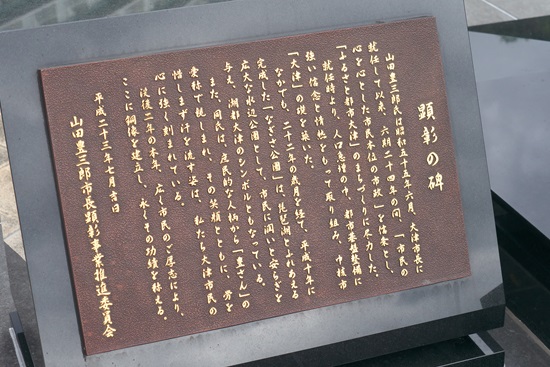 顕彰の碑
山田豊三郎氏は昭和五十五年六月、大津市長に
就任して以来、六期二十四年の間、「市民の
心を心とした市民本位の市政」を信条とし、
「ふるさと都市大津」のまちづくりに尽力した。
就任時より、人口急増の中、都市基盤整備に
強い信念と情熱をもって取り組み、中核市
「大津」の礎を築いた。
なかでも、二十二年の歳月を経て、平成十年に
完成した「なぎさ公園」は、琵琶湖とふれあえる
広大な水辺公園として、市民に潤いと安らぎを
与え、湖都大津のシンボルともなっている。
また、同氏は、庶民的な人柄から「豊さん」の
愛称で親しまれ、その笑顔とともに、労を
惜しまず汗を流す姿は、私たち大津市民の
心に強く刻まれている。
没後二年の本年、広く市民のご厚志により、
ここに銅像を建立し、永くその功績を称える。
平成二十三年七月吉日
山田豊三郎市長顕彰事業推進委員会